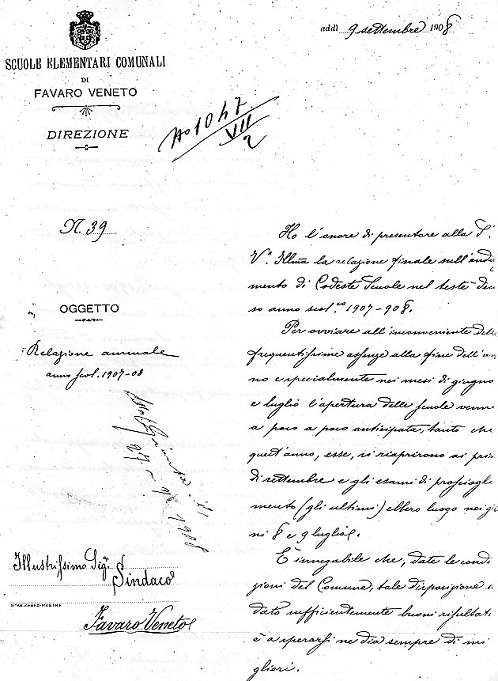 addì 9 settembre 1908
SCUOLE ELEMENTARI COMUNALI
DI
FAVARO VENETO
DIREZIONE
No 1047
VII
2
N. 39
OGGETTO
Relazione annuale
anno scol. 1907-08
Illustrissimo Sig.
Sindaco
Favaro Veneto
Ho l'onore di presentare alla S.
V.a Illma la relazione finale sull'anda
mento di Codeste Scuole nel testè de
so anno scol.co 1907-908.
Per ovviare all'inconveniente delle
frequentissime assenze alla fine dell'an
no e specialmente nei mesi di giugno
e luglio l'apertura delle Scuole venne
a poco a poco anticipata, tanto che
quest'anno, esse, si riaprirono ai pri
di settembre e gli esami di prosciogli
mento (gli ultimi) ebbero luogo nei gior
ni 8 e 9 luglio.
È innegabile che, date le condi
zioni del Comune, tale disposizione
dato sufficientemente buoni risultati
è a sperarsi ne dia sempre di mi
gliori.